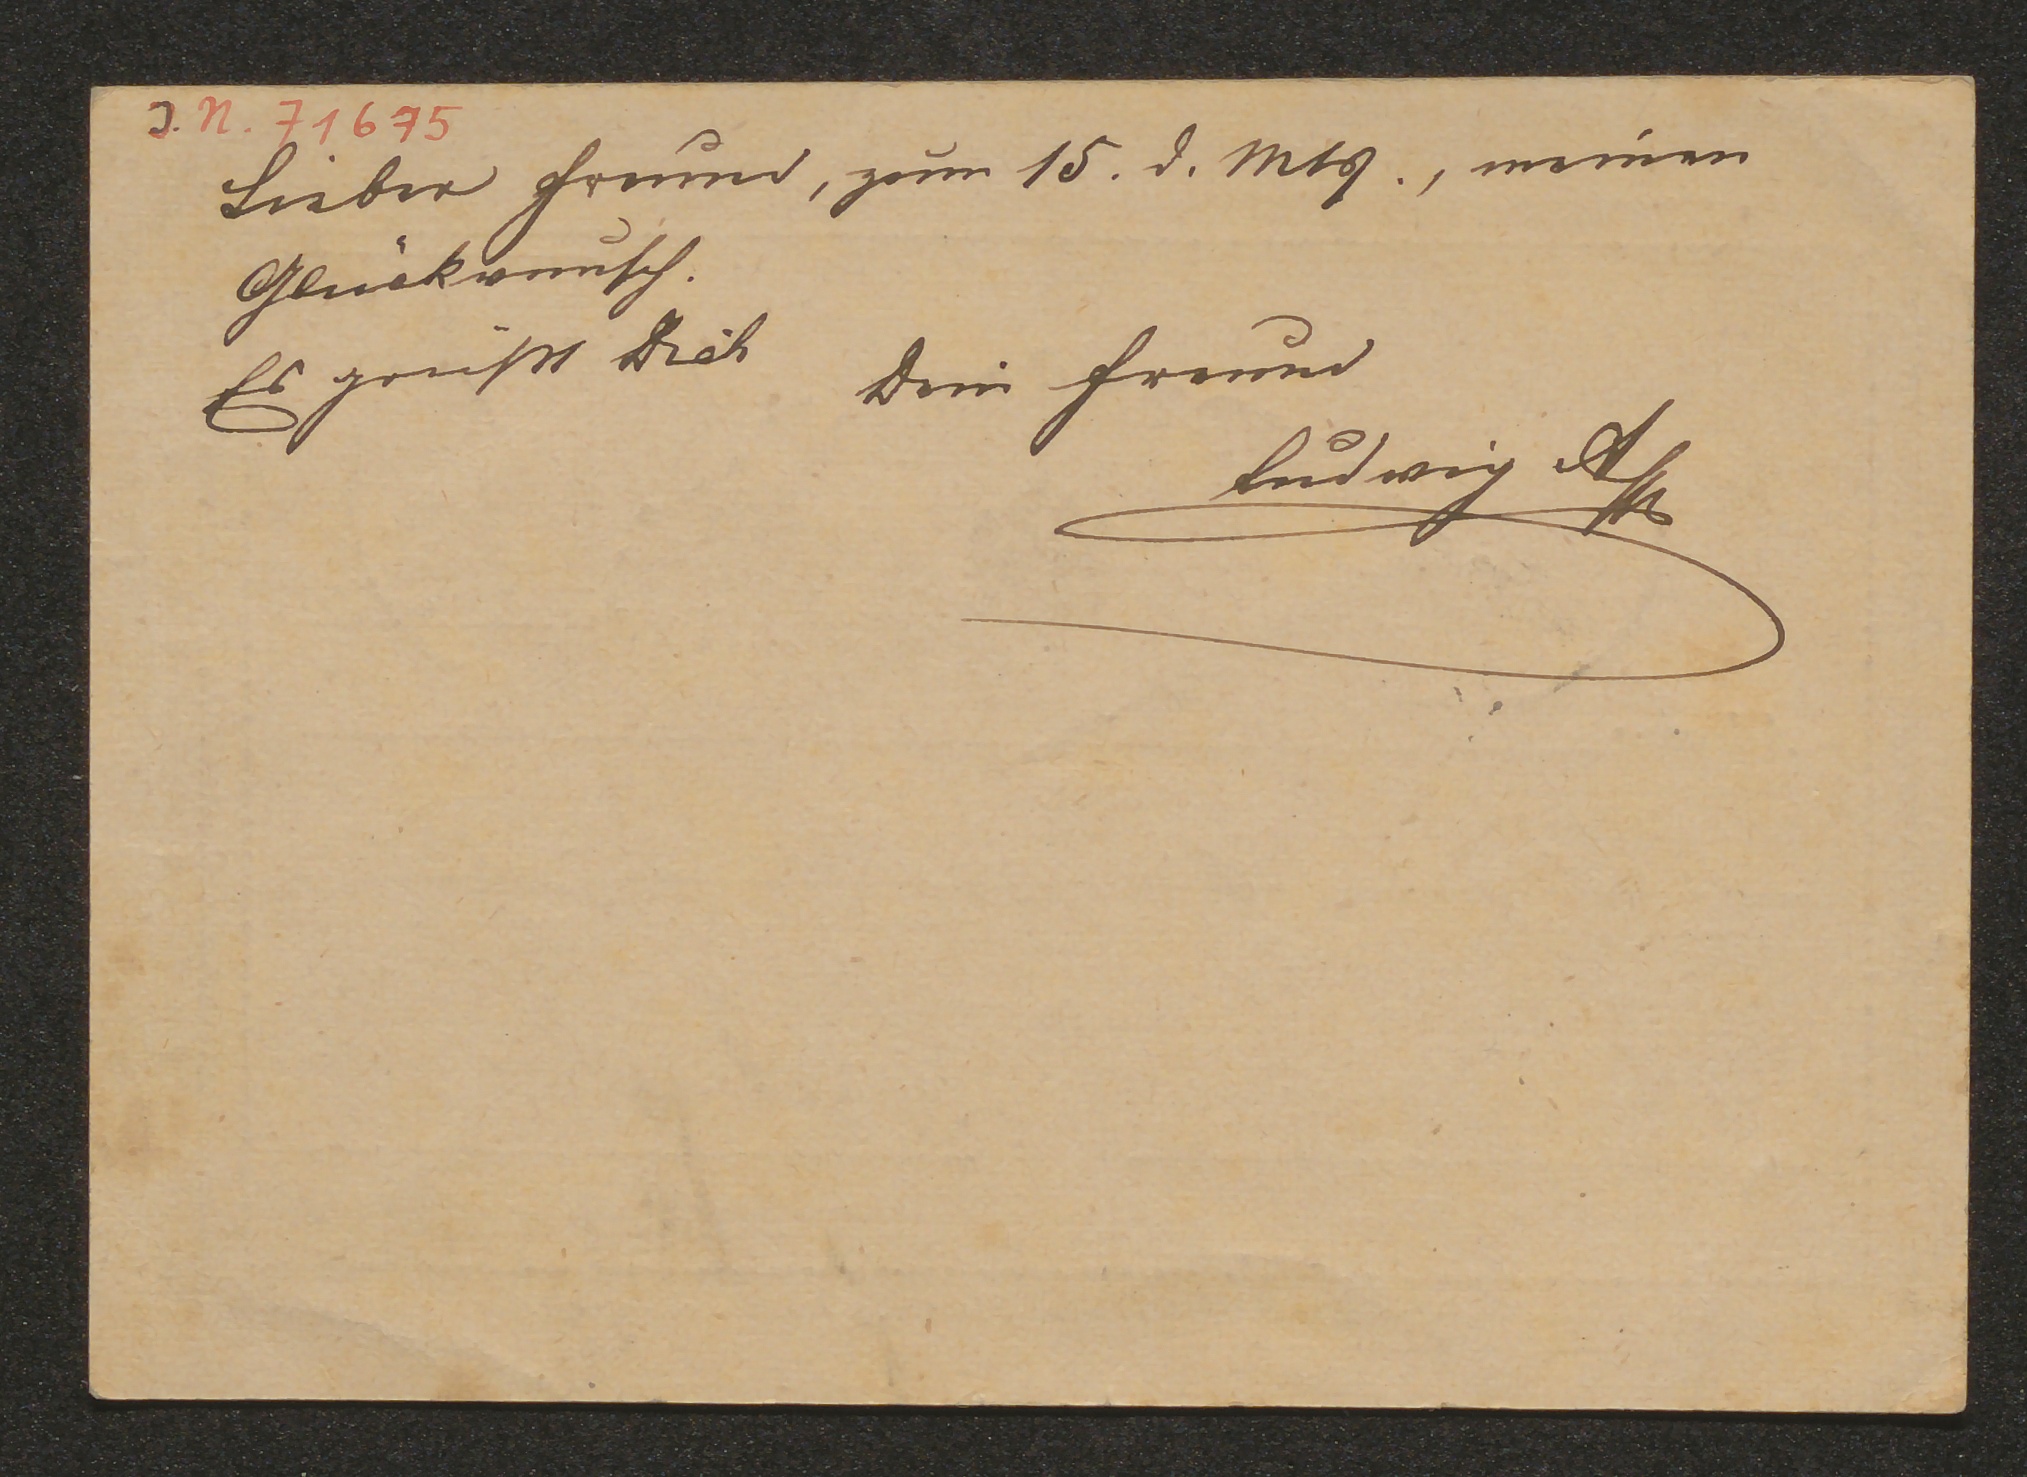 J. N. 71675
Lieber Freund, zum 15. d. Mts., meinen
Glückwunsch.
Es grüßt Dich Dein Freund
Ludwig